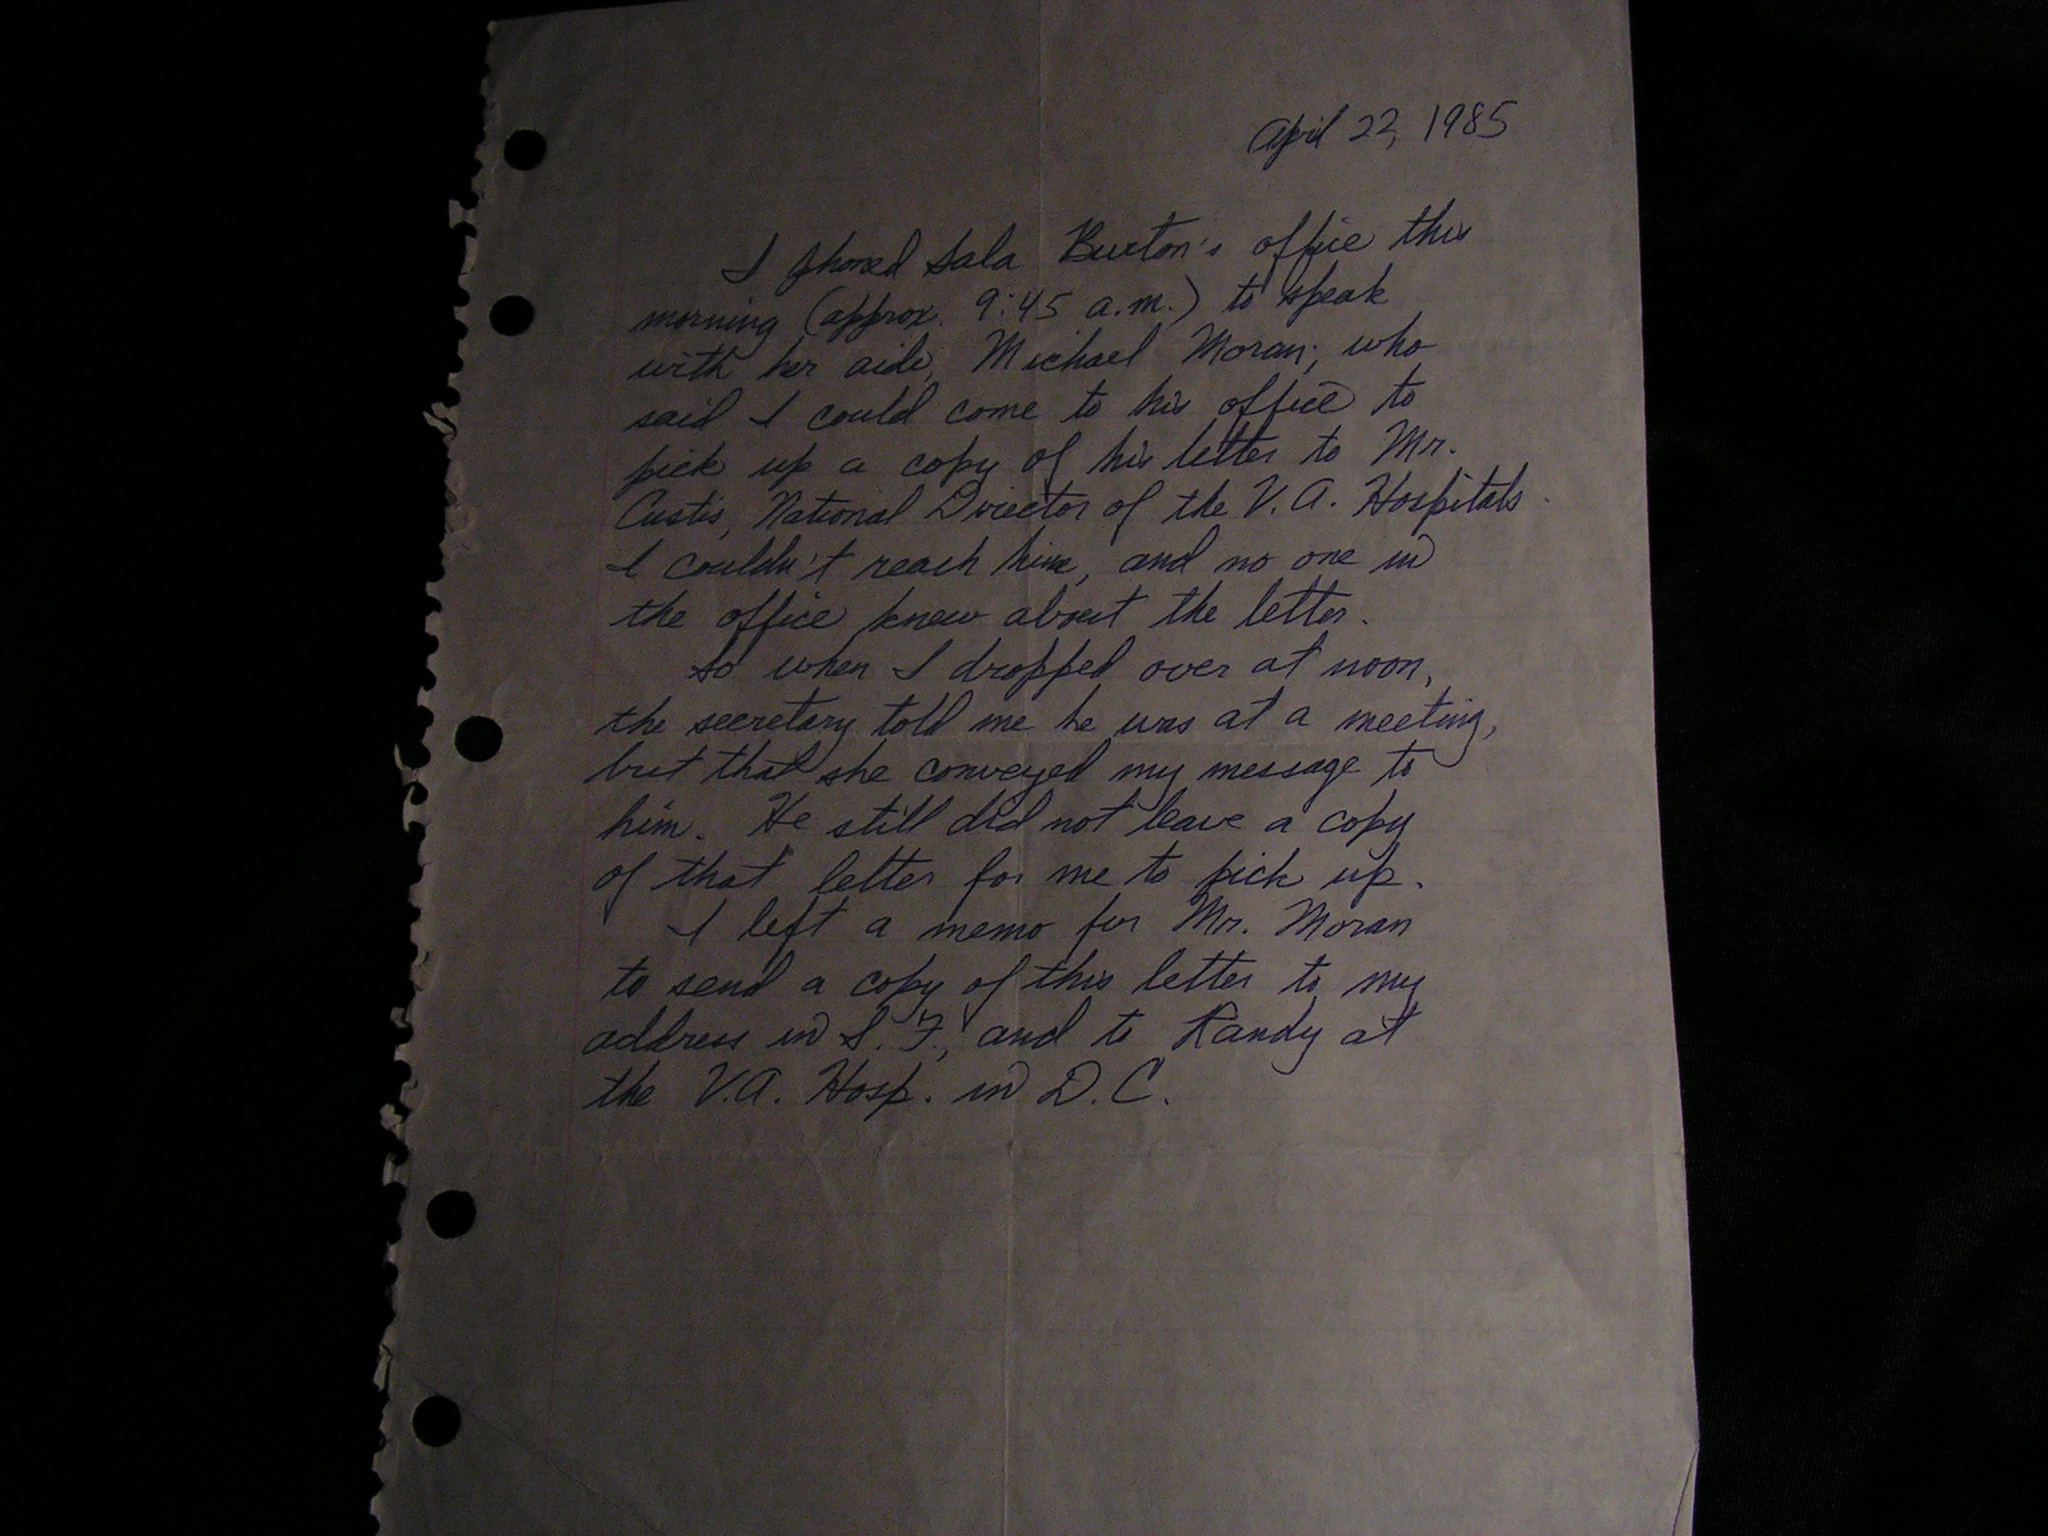 April 22, 1985
I phoned Sala Burton's office this
morning (approx. 9:45 a.m.) to speak
with her aide, Michael Moran, who
said I could come to his office to
pick up a copy of his letter to Mr.
Custis, National Director of the V.A. Hospitals.
I couldn't reach him, and no one in
the office knew about the letter.
So when I dropped over at noon,
the secretary told me he was at a meeting,
but that she conveyed my message to
him. He still did not leave a copy
of that letter for me to pick up.
I left a memo for Mr. Moran
to send a copy of this letter to my
address in S.F., and to Randy at
the V.A. Hosp. in D.C.